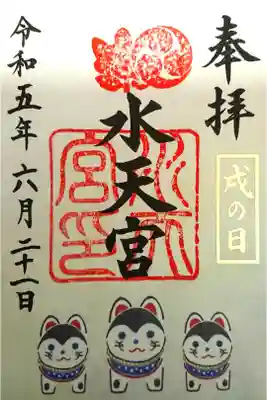 奉拝
戌の日
水天宮
水天宮印
令和五年六月二十一日